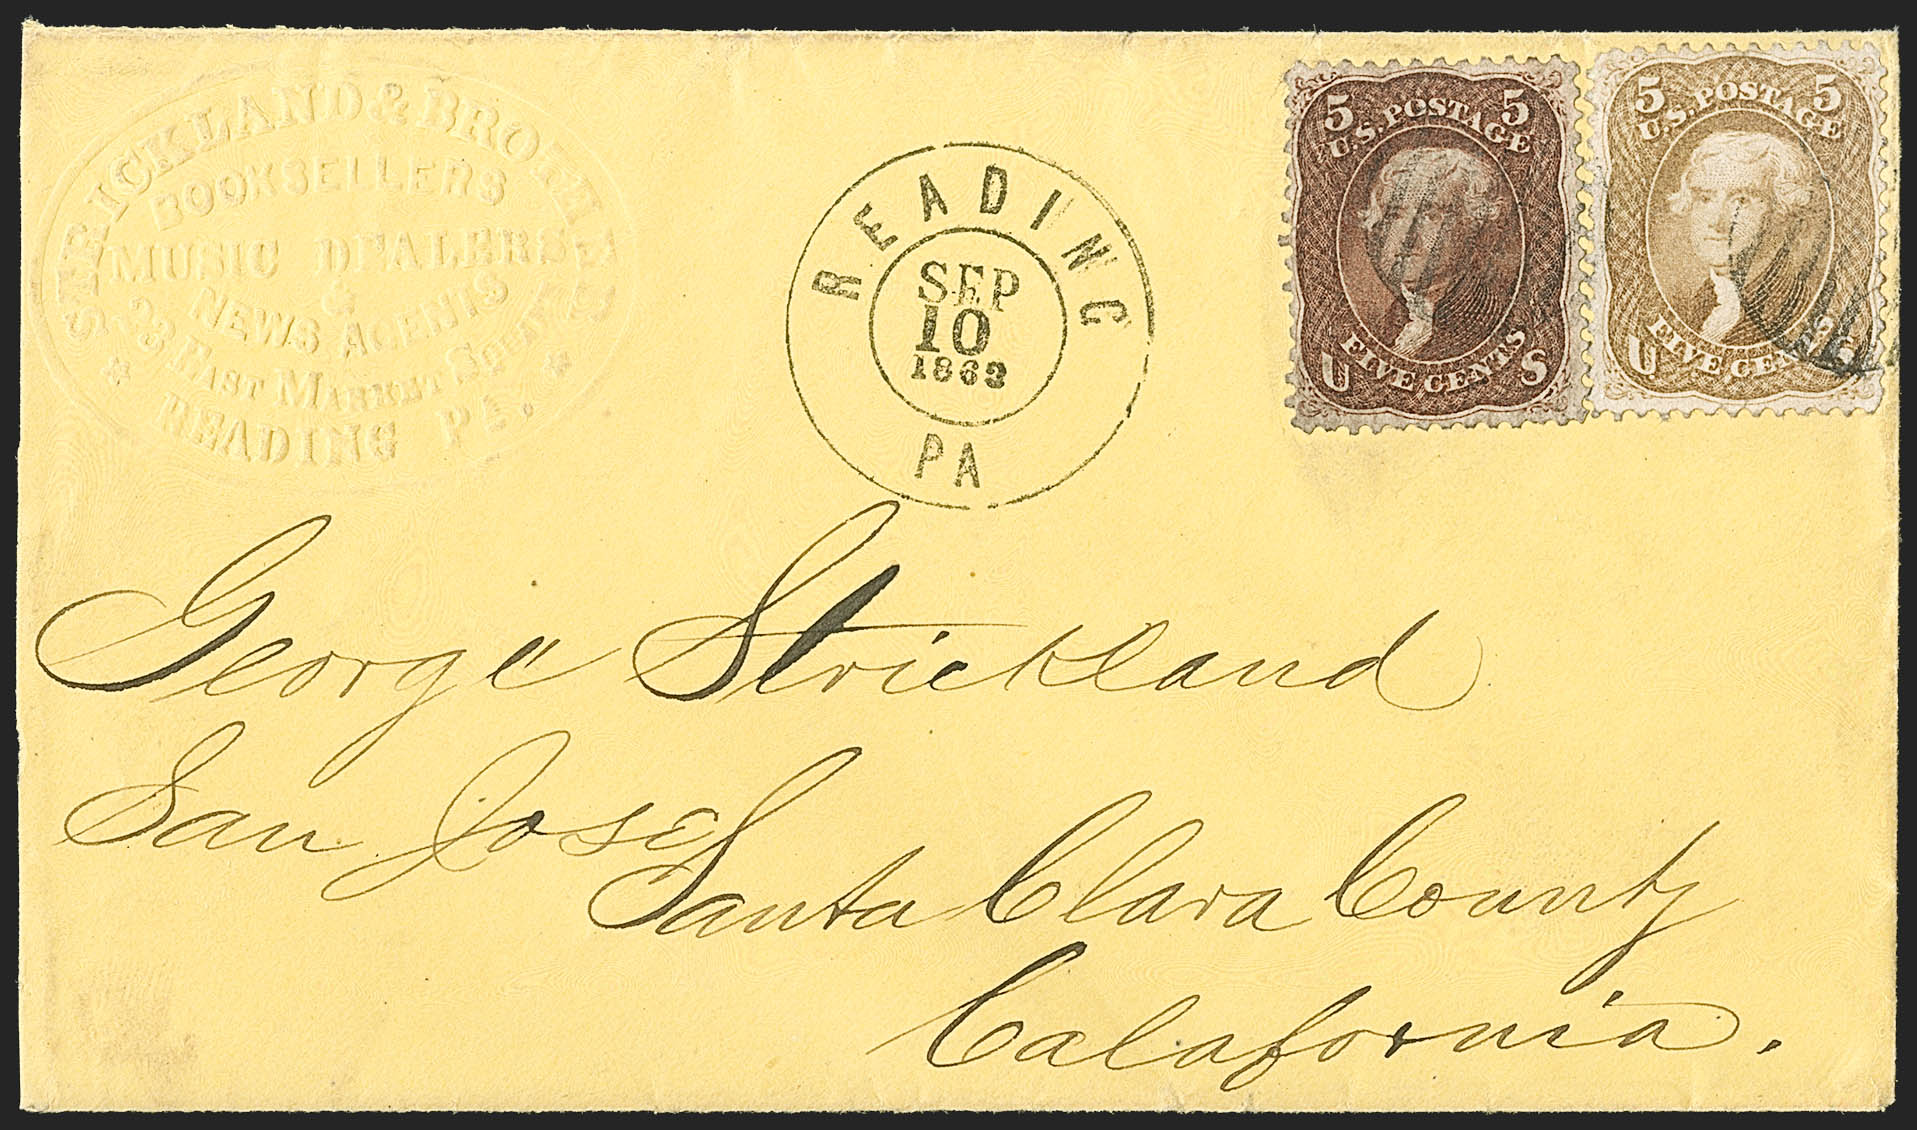 STRICKLAND & BROTHERS
BOOKSELLERS
MUSIC DEALERS
&
NEWS AGENTS
33 EAST MARKET SQUARE
READING PA.
READING
SEP
10
1863
PA
5 5
U.S. POSTAGE
FIVE CENTS
U S
5 5
U.S. POSTAGE
FIVE CENTS
U S
George Strickland
San Jose
Santa Clara County
Calafornia.